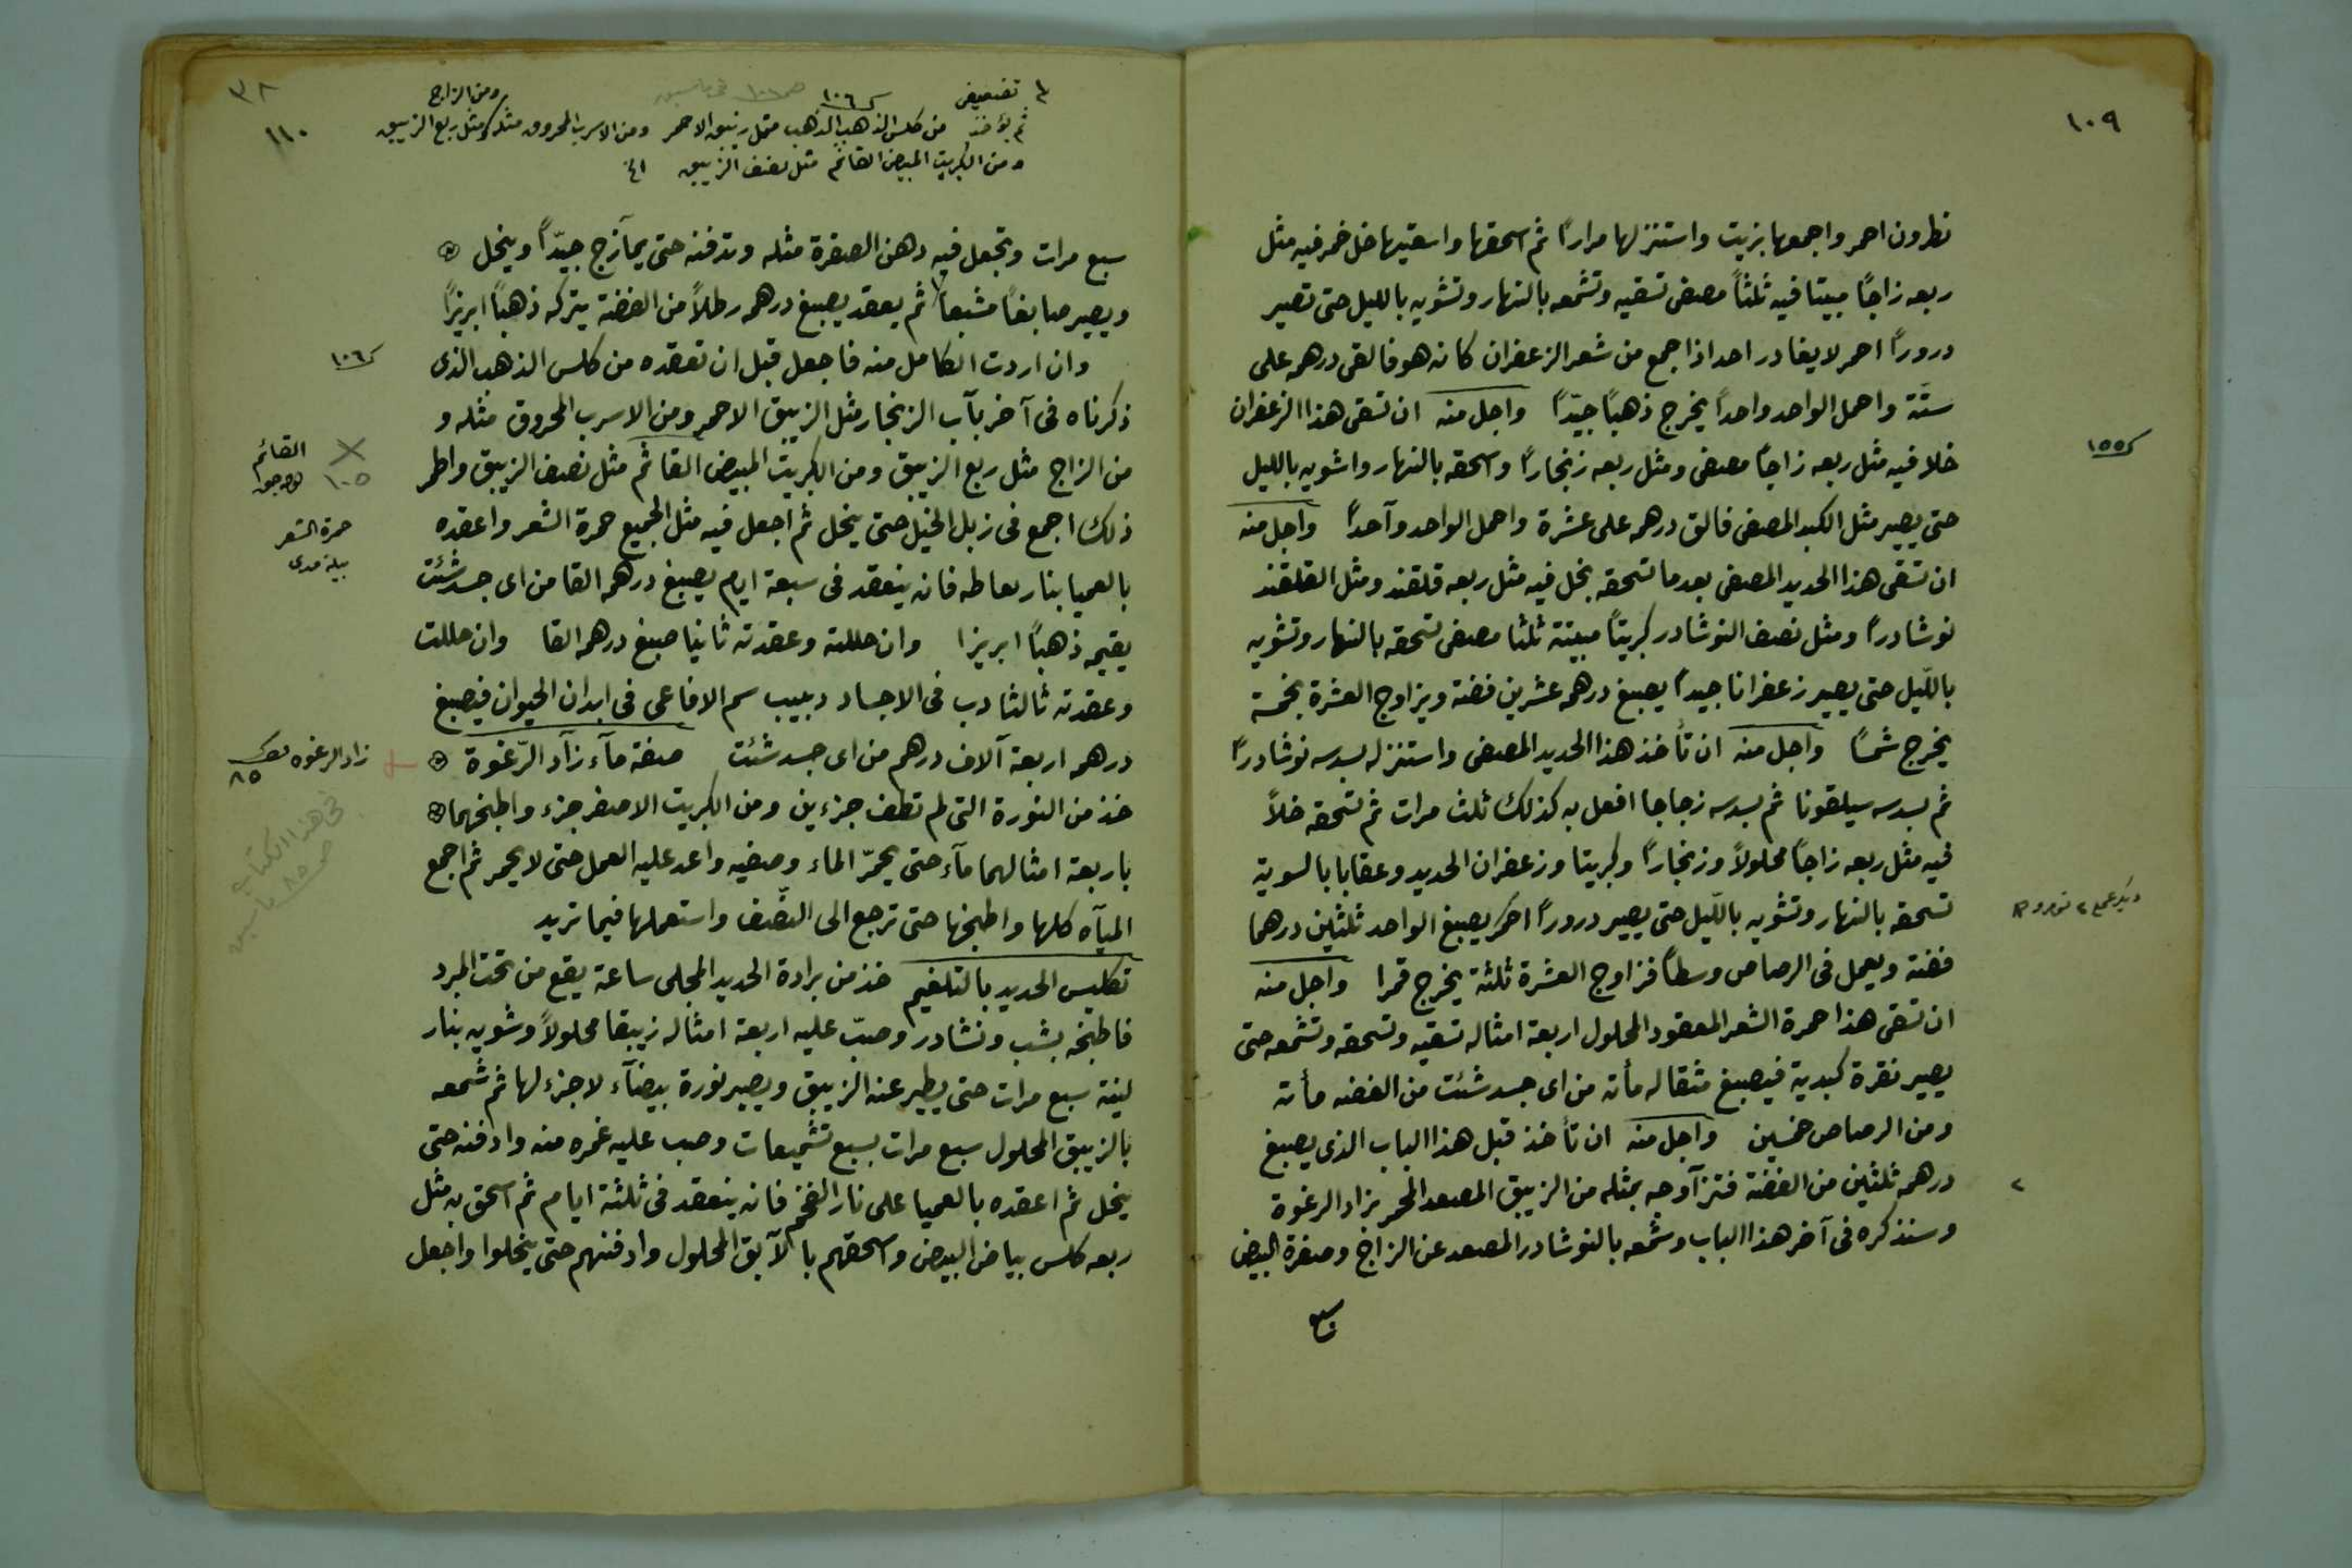 ١٠٩
نطرون احمر واجمعها بزيت واستنزلها مرارًا ثم اسحقها واسقيها خل خمر فيه مثل
ربعه زاجًا مبيتا فيه ثلثًا مصفى تسقيه وتشمعه بالنهار وتشويه بالليل حتى تصير
درورًا احمر لا يغادر احد اذا جمع من شعر الزعفران كانه هو فالقى درهمه على
ستّة واحمل الواحد واحدًا يخرج ذهبًا جيّدًا واجل منه ان تسقى هذا الزعفران
خلا فيه مثل ربعه زاجًا مصفى ومثل ربعه زنجارًا واسحقه بالنهار واشويه بالليل
١٥٥
حتى يصير مثل الكبد المصفى فالق درهمه على عشرة واحمل الواحد وآحدًا واجل منه
ان تسقى هذا الحديد المصفى بعد ما تسحقه بخل فيه مثل ربعه قلقند ومثل القلقند
نوشادرًا ومثل نصف النوشادر كبريتًا مبيتة ثلثا مصفى تسحقه بالنهار وتشويه
باللّيل حتى يصير زعفرانا جيدًا يصبغ درهمه عشرين فضة ويزاوج العشرة بخمسة
يخرج شمسًا واجل منه ان تأخذ هذا الحديد المصفى واستنزله بسدسه نوشادرًا
ثم بسدسه سيلقونا ثم بسدسه زجاجا افعل به كذلك ثلث مرات ثم تسحقه خلاً
فيه مثل ربعه زاجًا محلولاً وزنجارًا وكبريتا وزعفران الحديد وعقابا بالسوية
تسحقه بالنهار وتشويه باللّيل حتى يصير درورًا احمر يصبغ الواحد ثلثين درهما
فضة ويعمل فى الرصاص وسطًا فزاوج العشرة ثلثة يخرج قمرا واجل منه
ان تسقى هذا حمرة الشعر المعقود المحلول اربعة امثاله تسقيه وتسحقه وتشمعه حتى
يصير نقرة كبدية فيصبغ مثقاله مأته من اى جسد شئت من الفضه مأته
ومن الرصاص خمسين واجل منه ان تأخذ قبل هذا الباب الذى يصبغ
درهمه ثلثين من الفضة فتزآوجه بمثله من الزيبق المصعد المحمر بزاد الرغوة
وسنذكره فى آخر هذا الباب وشمعه بالنوشادر المصعد عن الزاج وصفرة البيض
سبع
١١٠
١٠٦
ومن الزاج
ثم يؤخذ من كلس الذهب الذهب مثل زيبقه الاحمر ومن الاسرب المحروق مثله ومثل ربع الزيبق
ومن الكبريت المبيض القائم مثل نصف الزيبق
سبع مرات وتجعل فيه دهن الصفرة مثله وتدفنه حتى يمآزج جيّدًا وينحل
ويصير صابغًا مشبعا ثم يعقد يصبغ درهمه رطلاً من الفضة يتركه ذهبًا ابريزًا
وان اردت الكامل منه فاجعل قبل ان تعقده من كلس الذهب الذى
١٠٦
ذكرناه فى آخر بآب الزنجار مثل الزيبق الاحمر ومن الاسرب المحروق مثله و
من الزاج مثل ربع الزيبق ومن الكبريت المبيض القائم مثل نصف الزيبق واطمر
القائم
١٠٥
ذلك اجمع فى زبل الخيل حتى ينحل ثم اجعل فيه مثل الجميع حمرة الشعر واعقده
حمرة الشعر
بالعميا بنار لطاطه فانه ينعقد فى سبعة ايام يصبغ درهمه الفا من اى جسد شئت
يقيمه ذهبًا ابريزا وان حللته وعقدته ثانيا صبغ درهمه الفا وان حللت
وعقدته ثالثا دب فى الاجساد دبيب سم الافاعى فى ابدان الحيوان فيصبغ
درهمه اربعة آلاف درهم من اى جسد شئت صفة مآء زآد الرّغوة
زاد الرغوه
٨٥
خذ من النورة التى لم تطف جزءين ومن الكبريت الاصفر جزء واطبخهما
باربعة امثالهما مآء حتى يحمرّ الماء وصفيه واعد عليه العمل حتى لا يحمر ثم اجمع
فى هذا الكتاب
المياه كلها واطبخها حتى ترجع الى النصّف واستعملها فيما تريد
تكليس الحديد بالتلغيم خذ من برادة الحديد المجلى ساعة يقع من تحت المبرد
فاطبخه بشب ونشادر وصبّ عليه اربعة امثاله زيبقا محلولاً وشويه بنار
لينة سبع مرات حتى يطير عنه الزيبق ويصير نورة بيضآء لا جزء لها ثم شمعه
بالزيبق المحلول سبع مرات بسبع تشميعات وصب عليه غمره منه وادفنه حتى
ينحل ثم اعقده بالعميا على نار الفحم فانه ينعقد فى ثلثة ايام ثم اسحق به مثل
ربعه كلس بياض البيض واسحقهم بالآبق المحلول وادفنهم حتى ينحلوا واجعل